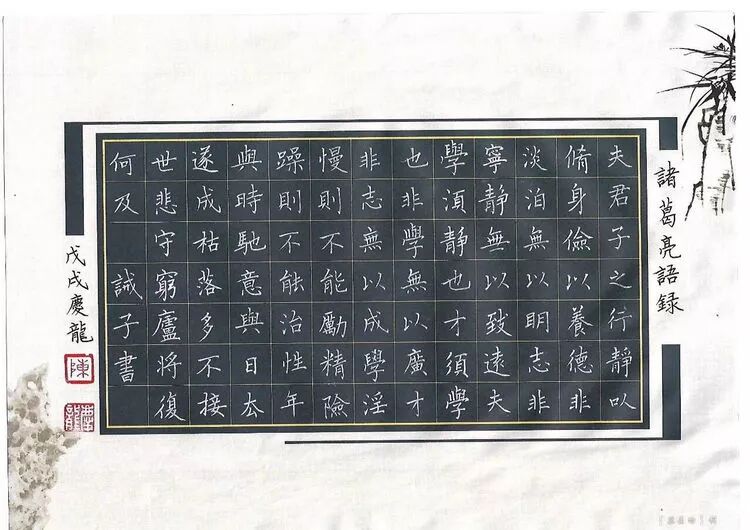 諸葛亮語録
夫君子之行靜以
脩身儉以養德非
淡泊無以明志非
寧靜無以致遠夫
學湏靜也才須學
也非學無以廣才
非志無以成學淫
慢則不能勵精險
躁則不能治性年
與時馳意與日厺
遂成枯落多不接
世悲守窮廬將復
何及 誡子書
戊戌慶龍
陳
慶龍